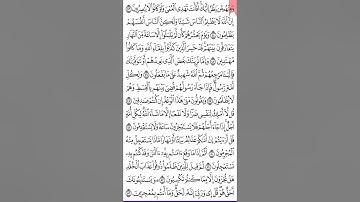 وَمِنْهُم مَّن يَنظُرُ إِلَيْكَ أَفَأَنتَ تَهْدِى ٱلْعُمْىَ وَلَوْ كَانُوا۟ لَا يُبْصِرُونَ ٤٣
إِنَّ ٱللَّهَ لَا يَظْلِمُ ٱلنَّاسَ شَيْـًٔا وَلَٰكِنَّ ٱلنَّاسَ أَنفُسَهُمْ
يَظْلِمُونَ ٤٤ وَيَوْمَ يَحْشُرُهُمْ كَأَن لَّمْ يَلْبَثُوٓا۟ إِلَّا سَاعَةً مِّنَ ٱلنَّهَارِ
يَتَعَارَفُونَ بَيْنَهُمْ قَدْ خَسِرَ ٱلَّذِينَ كَذَّبُوا۟ بِلِقَآءِ ٱللَّهِ وَمَا كَانُوا۟
مُهْتَدِينَ ٤٥ وَإِمَّا نُرِيَنَّكَ بَعْضَ ٱلَّذِى نَعِدُهُمْ أَوْ نَتَوَفَّيَنَّكَ
فَإِلَيْنَا مَرْجِعُهُمْ ثُمَّ ٱللَّهُ شَهِيدٌ عَلَىٰ مَا يَفْعَلُونَ ٤٦ وَلِكُلِّ
أُمَّةٍ رَّسُولٌ فَإِذَا جَآءَ رَسُولُهُمْ قُضِىَ بَيْنَهُم بِٱلْقِسْطِ وَهُمْ
لَا يُظْلَمُونَ ٤٧ وَيَقُولُونَ مَتَىٰ هَٰذَا ٱلْوَعْدُ إِن كُنتُمْ صَٰدِقِينَ ٤٨
قُل لَّآ أَمْلِكُ لِنَفْسِى ضَرًّا وَلَا نَفْعًا إِلَّا مَا شَآءَ ٱللَّهُ لِكُلِّ أُمَّةٍ
أَجَلٌ إِذَا جَآءَ أَجَلُهُمْ فَلَا يَسْتَـْٔخِرُونَ سَاعَةً وَلَا يَسْتَقْدِمُونَ ٤٩
قُلْ أَرَءَيْتُمْ إِنْ أَتَىٰكُمْ عَذَابُهُۥ بَيَٰتًا أَوْ نَهَارًا مَّاذَا يَسْتَعْجِلُ مِنْهُ
ٱلْمُجْرِمُونَ ٥٠ أَثُمَّ إِذَا مَا وَقَعَ ءَامَنتُم بِهِۦٓ ءَآلْـَٰٔنَ وَقَدْ كُنتُم بِهِۦ
تَسْتَعْجِلُونَ ٥١ ثُمَّ قِيلَ لِلَّذِينَ ظَلَمُوا۟ ذُوقُوا۟ عَذَابَ ٱلْخُلْدِ
هَلْ تُجْزَوْنَ إِلَّا بِمَا كُنتُمْ تَكْسِبُونَ ٥٢ وَيَسْتَنۢبِـُٔونَكَ
أَحَقٌّ هُوَ قُلْ إِى وَرَبِّىٓ إِنَّهُۥ لَحَقٌّ وَمَآ أَنتُم بِمُعْجِزِينَ ٥٣